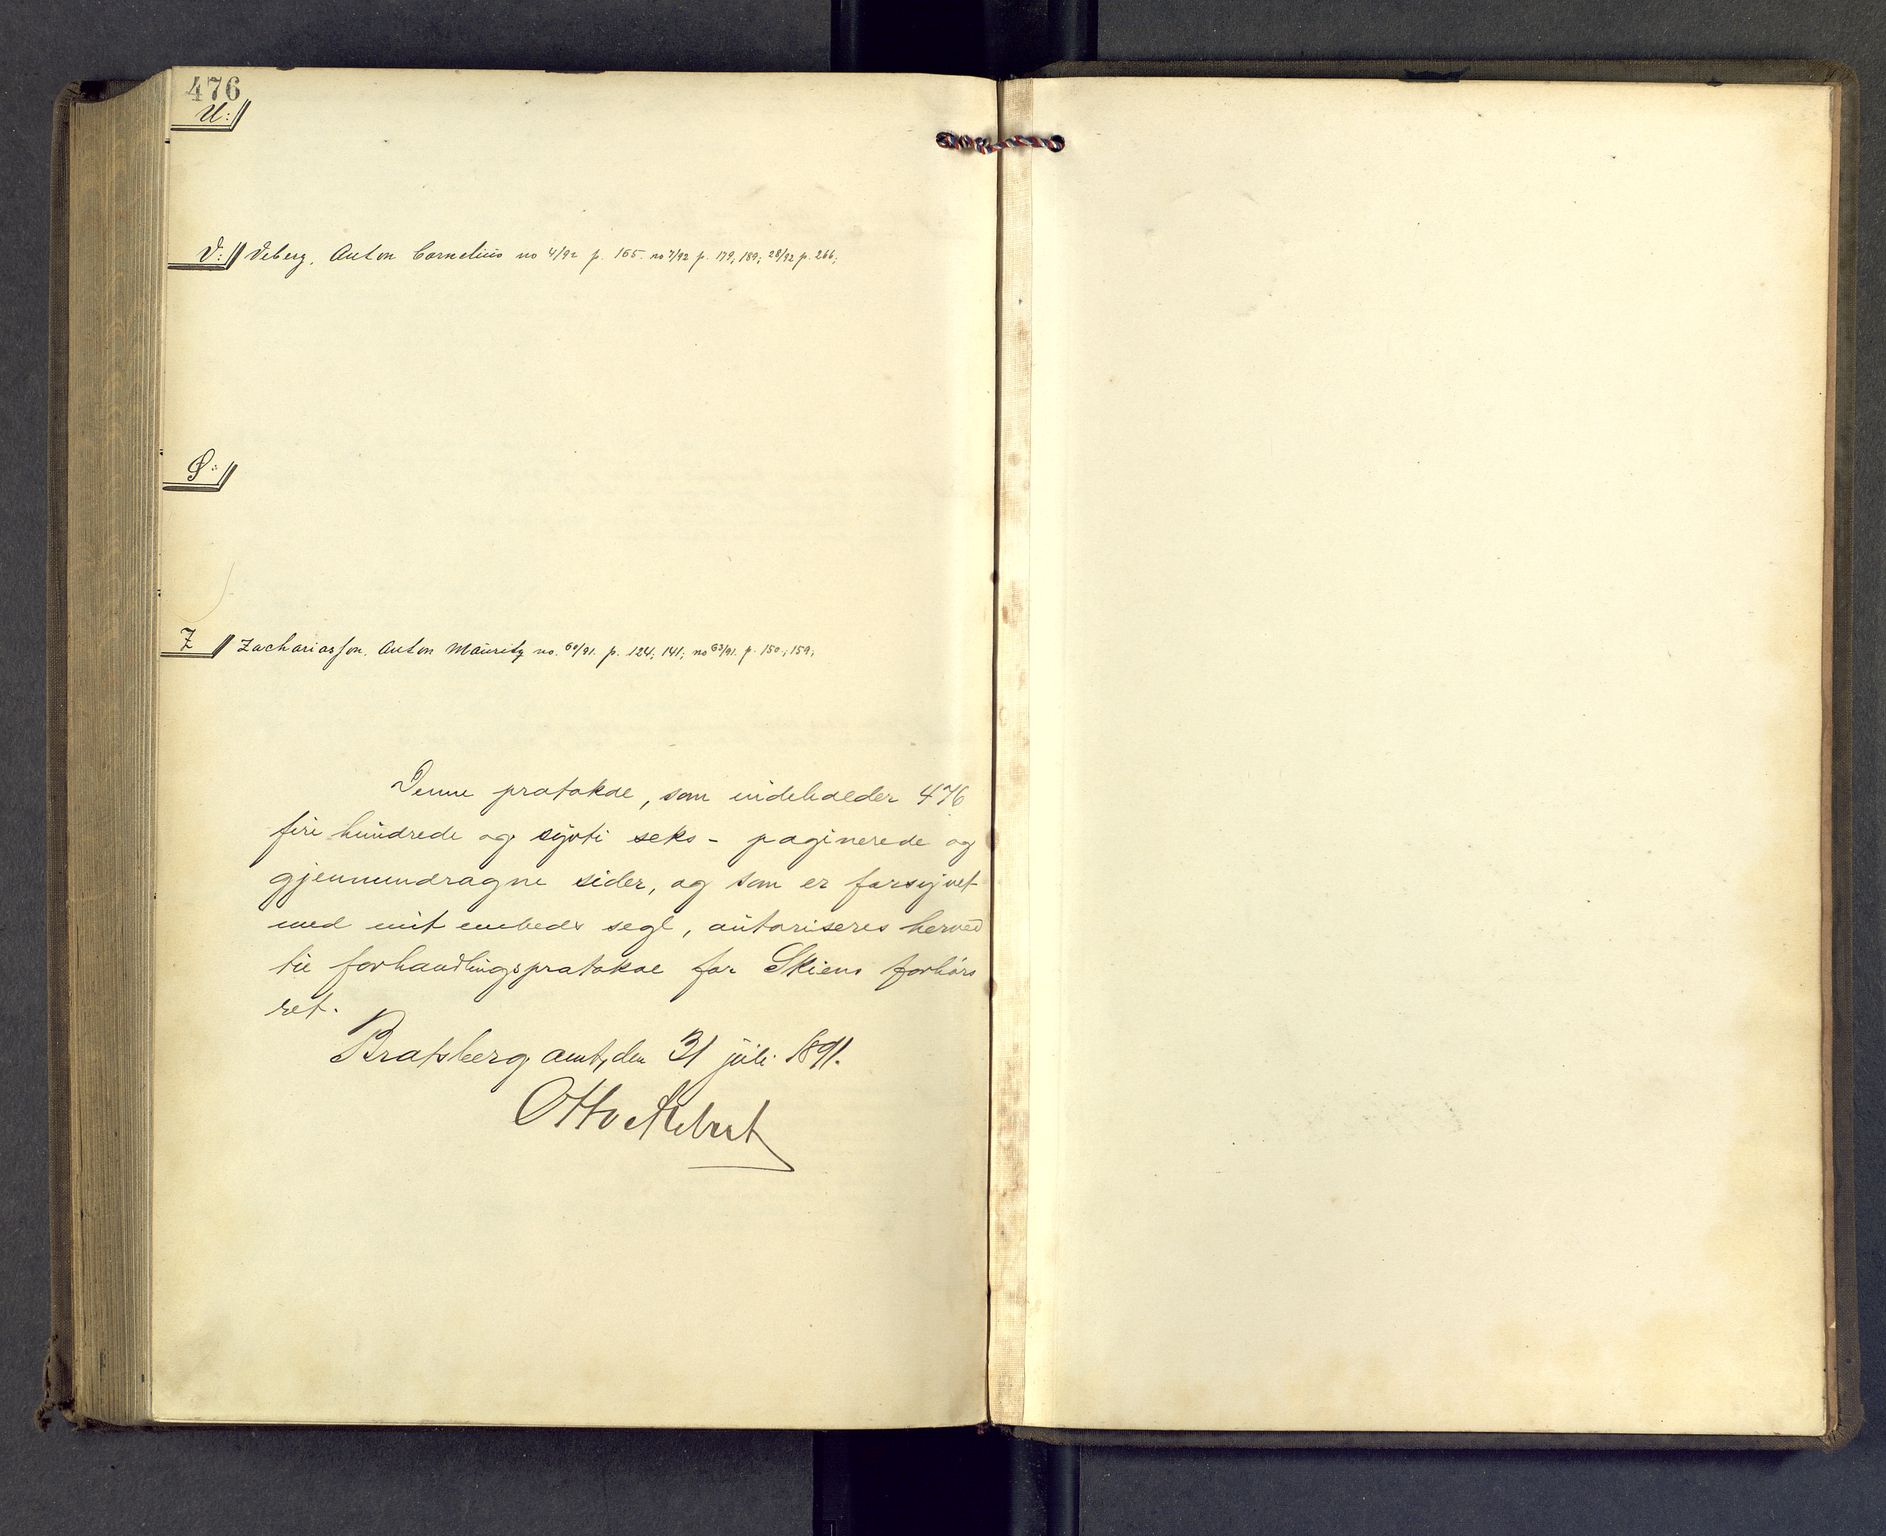 476
U:
V: Veberg, Anton Cornelius no 4/92 p. 165. no 7/92 p. 179, 189; 28/92 p. 266;
Ø:
Z Zachariasson, Anton Mauritz no. 60/91. p. 124; 141; no 63/91. p. 150; 159;
Denne protokol, som indeholder 476
fire hundrede og sytti seks - paginerede og
gjennemdragne sider, og som er forsynet
med mit embeds segl, autoriseres herved
til forhandlingsprotokol for Skiens forhørs
ret.
Bratsberg amt, den 31 juli 1891.
Otto